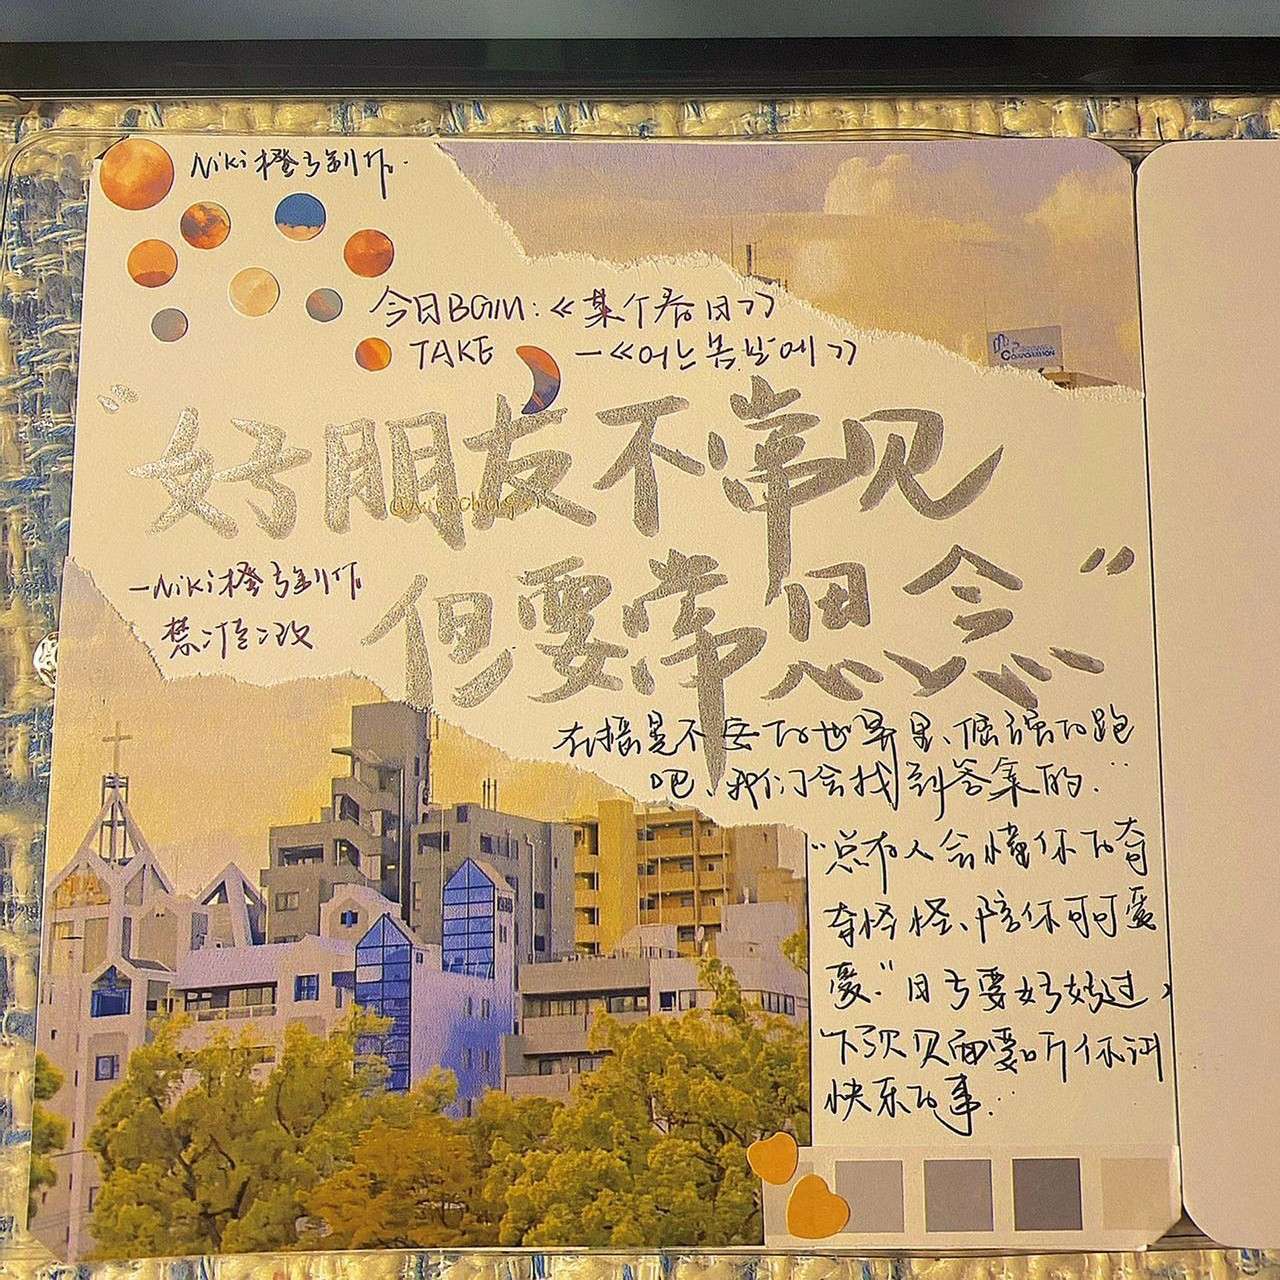 Niki橙子制作.
今日BGM:《某个春日》
TAKE —《어느 봄날에》
“好朋友不常见
但要常思念”
—Niki橙子制作
禁止二改
在摇晃不安的世界里、倔强的跑
吧、我们会找到答案的…
“总有人会懂你的奇
奇怪怪、陪你可可爱
爱.”日子要好好过,
下次见面要听你讲
快乐的事…